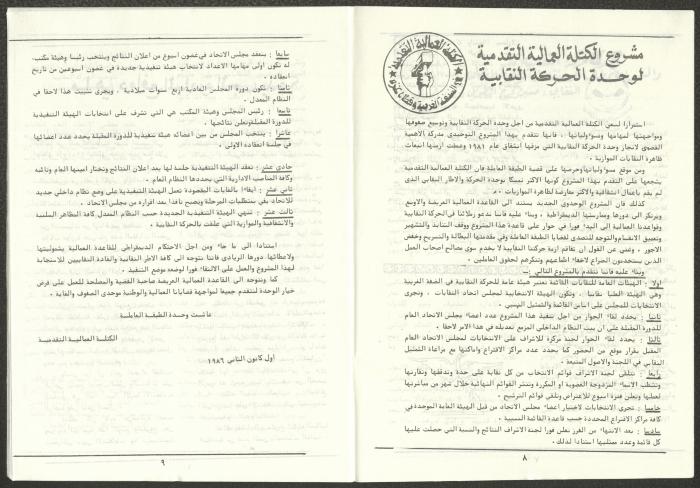 مشروع الكتلة العمالية التقدمية
لوحدة الحركة النقابية
الكتلة العمالية التقدمية
استمرارا لسعي الكتلة العمالية التقدمية من اجل وحدة الحركة النقابية وتوسيع صفوفها
ومواجهتها لمهامها ومسؤولياتها ، فانها تتقدم بهذا المشروع التوحيدي مدركة الاهمية
القصوى لانجاز وحدة الحركة النقابية التي مزقها انشقاق عام ١٩٨١ وعمقت ازمتها انبعاث
ظاهرة النقابات الموازية .
ومن موقع مسؤولياتها وحرصها على قضية الطبقة العاملة فان الكتلة العمالية التقدمية
يشجعها على التقدم بهذا المشروع كونها الاكثر تمسكا بوحدة الحركة والاطار النقابي الذي
لم يقم باعمال انشقاقية والاكثر معارضة لظاهرة الموازيات .
كذلك فان المشروع الوحدوي الجديد يستند الى القاعدة العمالية العريضة والاوسع
ويرتكز الى دورها وممارستها الديمقراطية ، وبناء عليه فاننا ندعو زملائنا في الحركة النقابية
وقواعدنا العمالية الى البدء فورا في حوار على قاعدة هذا المشروع ووقف التنابذ والتشهير
وتعميق الانقسام والتوجه للتصدي لقضايا الطبقة العاملة وفي مقدمتها البطالة والتسريح وخفض
الاجور . وغني عن القول ان تفاقم ازمة حركتنا النقابية لا يخدم سوى مصالح اصحاب العمل
الذين يستخدمون الصراع لاخفاء اطماعهم وتنكرهم لحقوق العاملين .
وبناء عليه فاننا نتقدم بالمشروع التالي :ـ
اولا : الهيئات العامة للنقابات القائمة تعتبر هيئة عامة للحركة النقابية في الضفة الغربية
وهي الهيئة العليا نقابيا . وتكون الهيئة الانتخابية لمجلس اتحاد النقابات . وتجرى
الانتخابات للمجلس على اساس القائمة والتمثيل النسبي .
ثانيا : يحدد لقاء الحوار من اجل تنفيذ هذا المشروع عدد اعضاء مجلس الاتحاد العام
للدورة المقبلة على ان يبت النظام الداخلي المزمع تعديله في هذا الامر لاحقا .
ثالثا : يحدد لقاء الحوار لجنة مركزة للاشراف على الانتخابات لمجلس الاتحاد العام
المقبل بقرار موقع من الحضور كما يحدد عدد مراكز الاقتراع واماكنها مع مراعاة التمثيل
النقابي في اللجنة والاصول المتبعة .
رابعا : تتلقى لجنة الاشراف قوائم الانتخاب من كل نقابة على حدة وتدققها وتقارنها
وتشطب الاسماء المزدوجة العضوية او المكررة وتنشر القوائم النهائية خلال شهر من مباشرتها
لعملها وتعلن فترة اسبوع للاعتراض وتلقي قوائم الترشيح .
خامسا : تجرى الانتخابات لاختيار اعضاء مجلس الاتحاد من قبل الهيئة العامة الموحدة في
كافة مراكز الاقتراع المحددة حسب قاعدة القائمة النسبية .
سادسا : بعد الانتهاء من الفرز تعلن فورا لجنة الاشراف النتائج والنسبة التي حصلت عليها
كل قائمة وعدد ممثليها استنادا لذلك .
٨
سابعا : ينعقد مجلس الاتحاد في غضون اسبوع من اعلان النتائج وينتخب رئيسا وهيئة مكتب
له تكون اولى مهامها الاعداد لانتخاب هيئة تنفيذية جديدة في غضون اسبوعين من تاريخ
انعقاده .
ثامنا : تكون دورة المجلس العادية اربع سنوات ميلادية . ويجرى تثبيت هذا لاحقا في
النظام المعدل .
تاسعا : رئيس المجلس وهيئة المكتب هي التي تشرف على انتخابات الهيئة التنفيذية
للدورة المقبلة وتعلن نتائجها .
عاشرا : ينتخب المجلس من بين اعضائه هيئة تنفيذية للدورة المقبلة يحدد عدد اعضائها
في جلسة انعقاده الاولى .
حادي عشر : تعقد الهيئة التنفيذية جلسة لها بعد اعلان النتائج وتختار امينها العام ونائبه
وكافة المناصب الادارية التي يحددها النظام العام .
ثاني عشر : ايفاء بالغايات المقصودة تعمل الهيئة التنفيذية على وضع نظام داخلي جديد
للاتحاد يفي بمتطلبات المرحلة ويصبح نافذا بعد اقراره من مجلس الاتحاد .
ثالث عشر : تنهي الهيئة التنفيذية الجديدة حسب النظام المعدل كافة المظاهر السلبية
والانشقاقية والموازية التي علقت بالحركة النقابية .
استنادا الى ما جاء ومن اجل الاحتكام الديمقراطي للقاعدة العمالية بشموليتها
ولاعطائها دورها الريادي فاننا نتوجه الى كافة الاطر النقابية والقادة النقابيين للاستجابة
لهذا المشروع والعمل على الالتقاء فورا لوضعه موضع التنفيذ .
كما ونتوجه الى القاعدة العمالية العريضة صاحبة القضية والمصلحة للعمل على فرض
خيار الوحدة لنتقدم جميعا لمواجهة قضايانا العمالية والوطنية موحدي الصفوف والغاية .
عاشت وحدة الطبقة العاملة
الكتلة العمالية التقدمية
اول كانون الثاني ١٩٨٦
٩